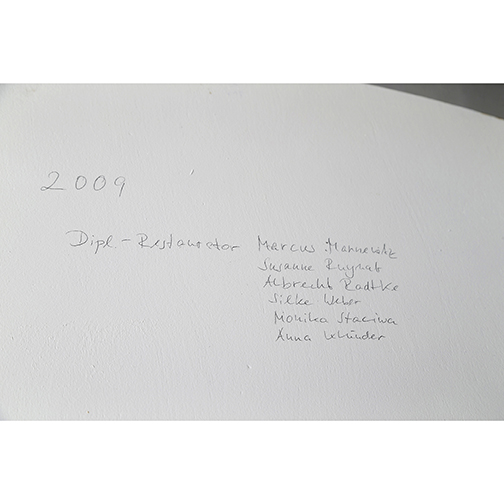 2009
Dipl-Restaurator Marcus Mannewitz
Susanne
Albrecht Radtke
Silke Weber
Monika Staciwa
Anna